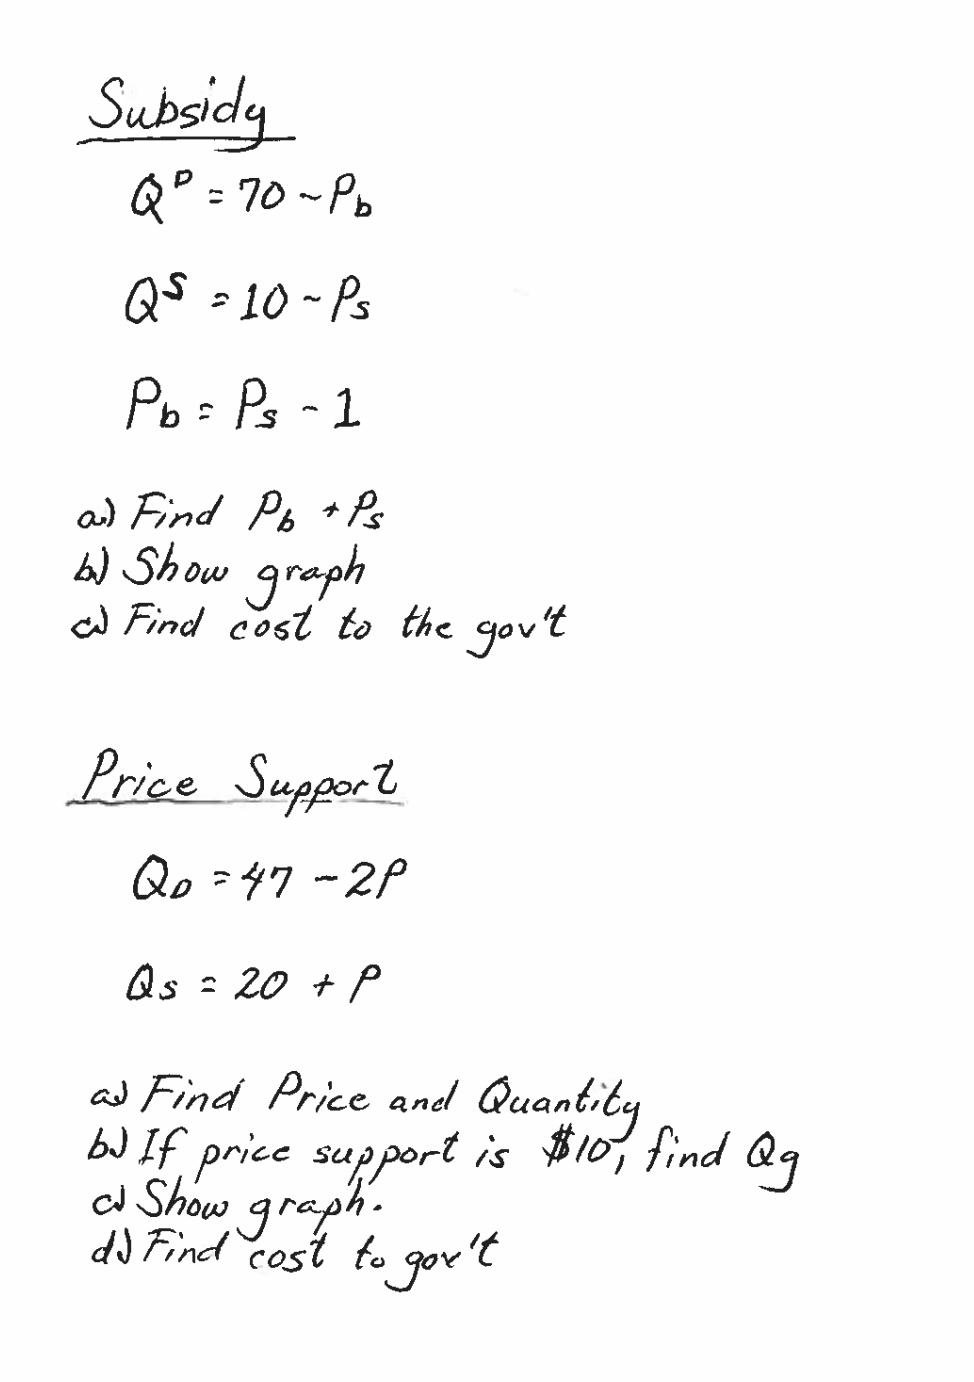 Subsidy
Qᴰ = 70 - Pb
Qˢ = 10 - Ps
Pb = Ps - 1
a) Find Pb + Ps
b) Show graph
c) Find cost to the gov't
Price Support
QD = 47 - 2P
Qs = 20 + P
a) Find Price and Quantity
b) If price support is $10, find Qg
c) Show graph.
d) Find cost to gov't